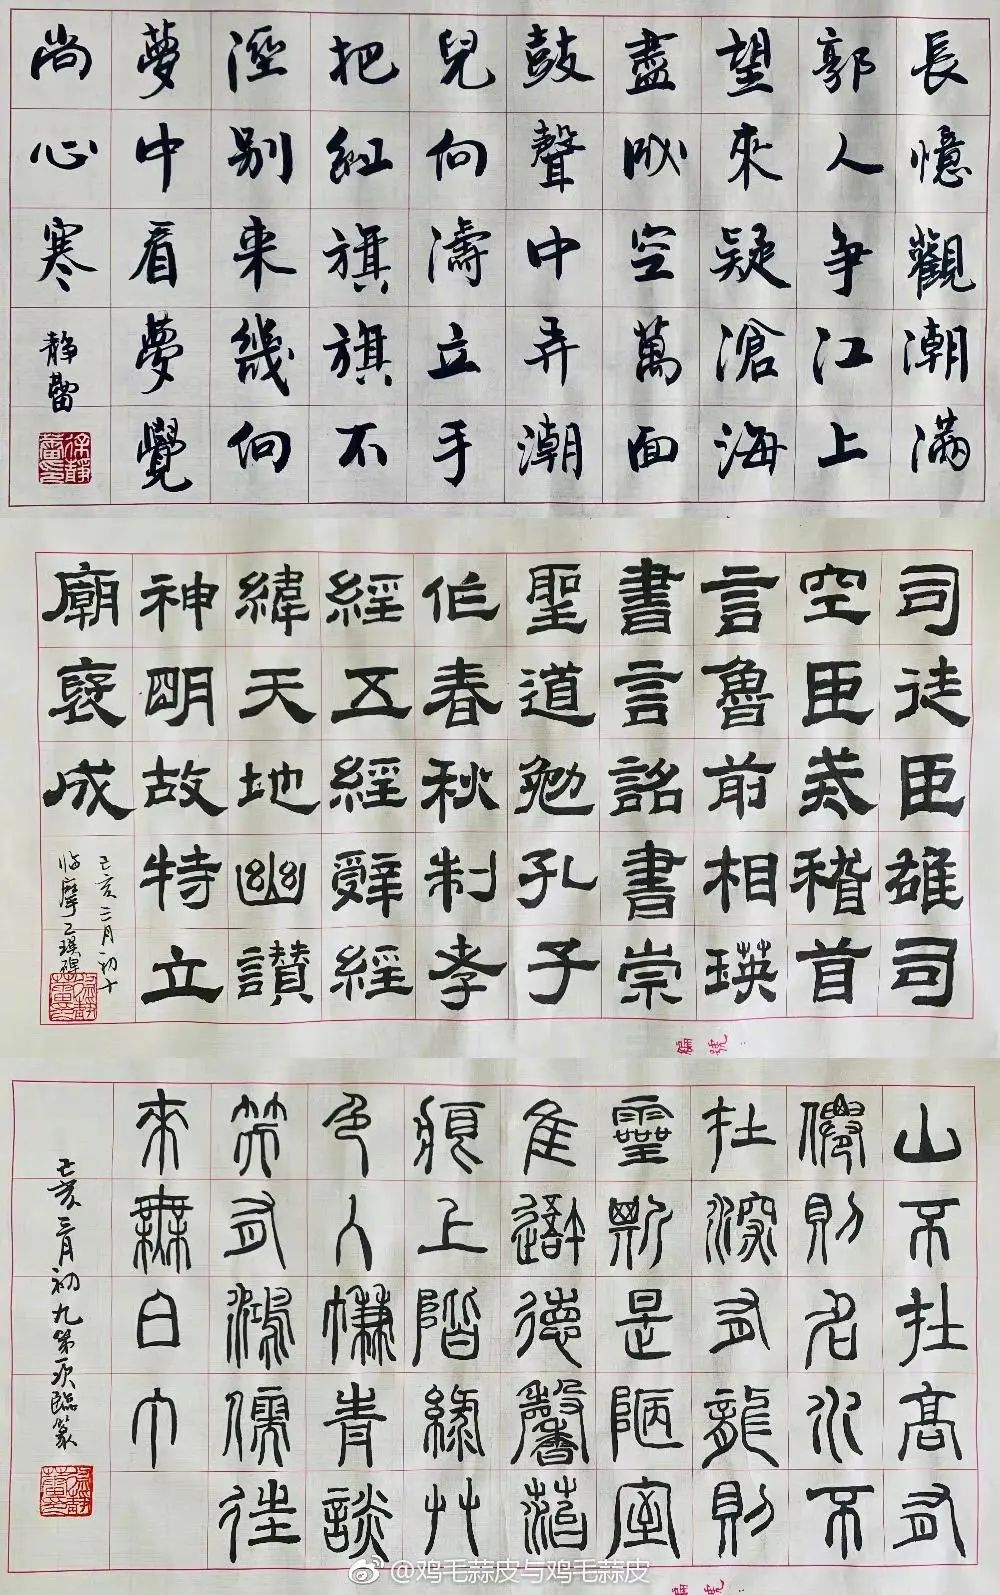 長憶觀潮滿
郭人爭江上
望來疑滄海
盡成空萬面
鼓聲中弄潮
兒向濤立手
把紅旗旗不
溼别来幾向
夢中看夢覺
尚心寒
静蕾
司徒臣雄司
空臣戒稽首
言魯前相瑛
書言詔書崇
聖道勉孔子
作春秋制孝
經五經辭經
緯天地幽讃
神明故特立
廟褒成
己亥三月初十
临摩乙瑛碑
山不在高有
僊則名水不
在深有龍則
靈斯是陋室
隹吾德馨菭
痕上階綠艸
色入簾青談
笑有鴻儒往
來無白丁
己亥三月初九第一次臨篆
@鸡毛蒜皮与鸡毛蒜皮